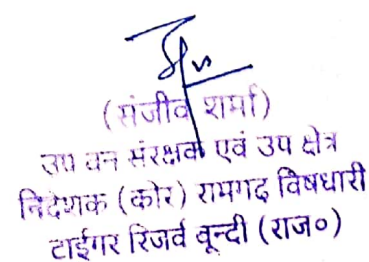 (संजीव शर्मा)
उप वन संरक्षक एवं उप क्षेत्र
निदेशक (कोर) रामगढ विषधारी
टाईगर रिजर्व बून्दी (राज०)